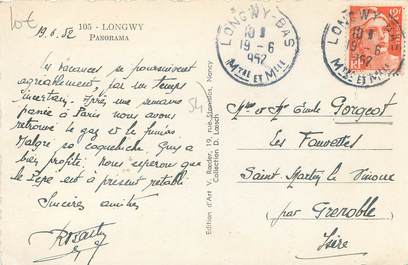 10€
105 - LONGWY
PANORAMA
19.6.52
Les vacances se poursuivent
agréablement, par un temps
incertain. Après une semaine
passée à Paris nous avons
retrouvé le gaz et la fumée.
Malgré sa coqueluche Guy a
bien profité. Nous espérons que
le Pépé est à présent rétabli
Sincères amitiés
54
Edition d'Art V. Rœder, 19, rue Stanislas, Nancy
Collection D. Lœsch
LONGWY-BAS
19 - 6
952
Mthe ET Mlle
LONGWY-BAS
19 - 6
952
Mthe ET Mlle
12F
Mme et Mr Emile Gorgeot
Les Fauvettes
Saint-Martin le Vinoux
par Grenoble
Isère